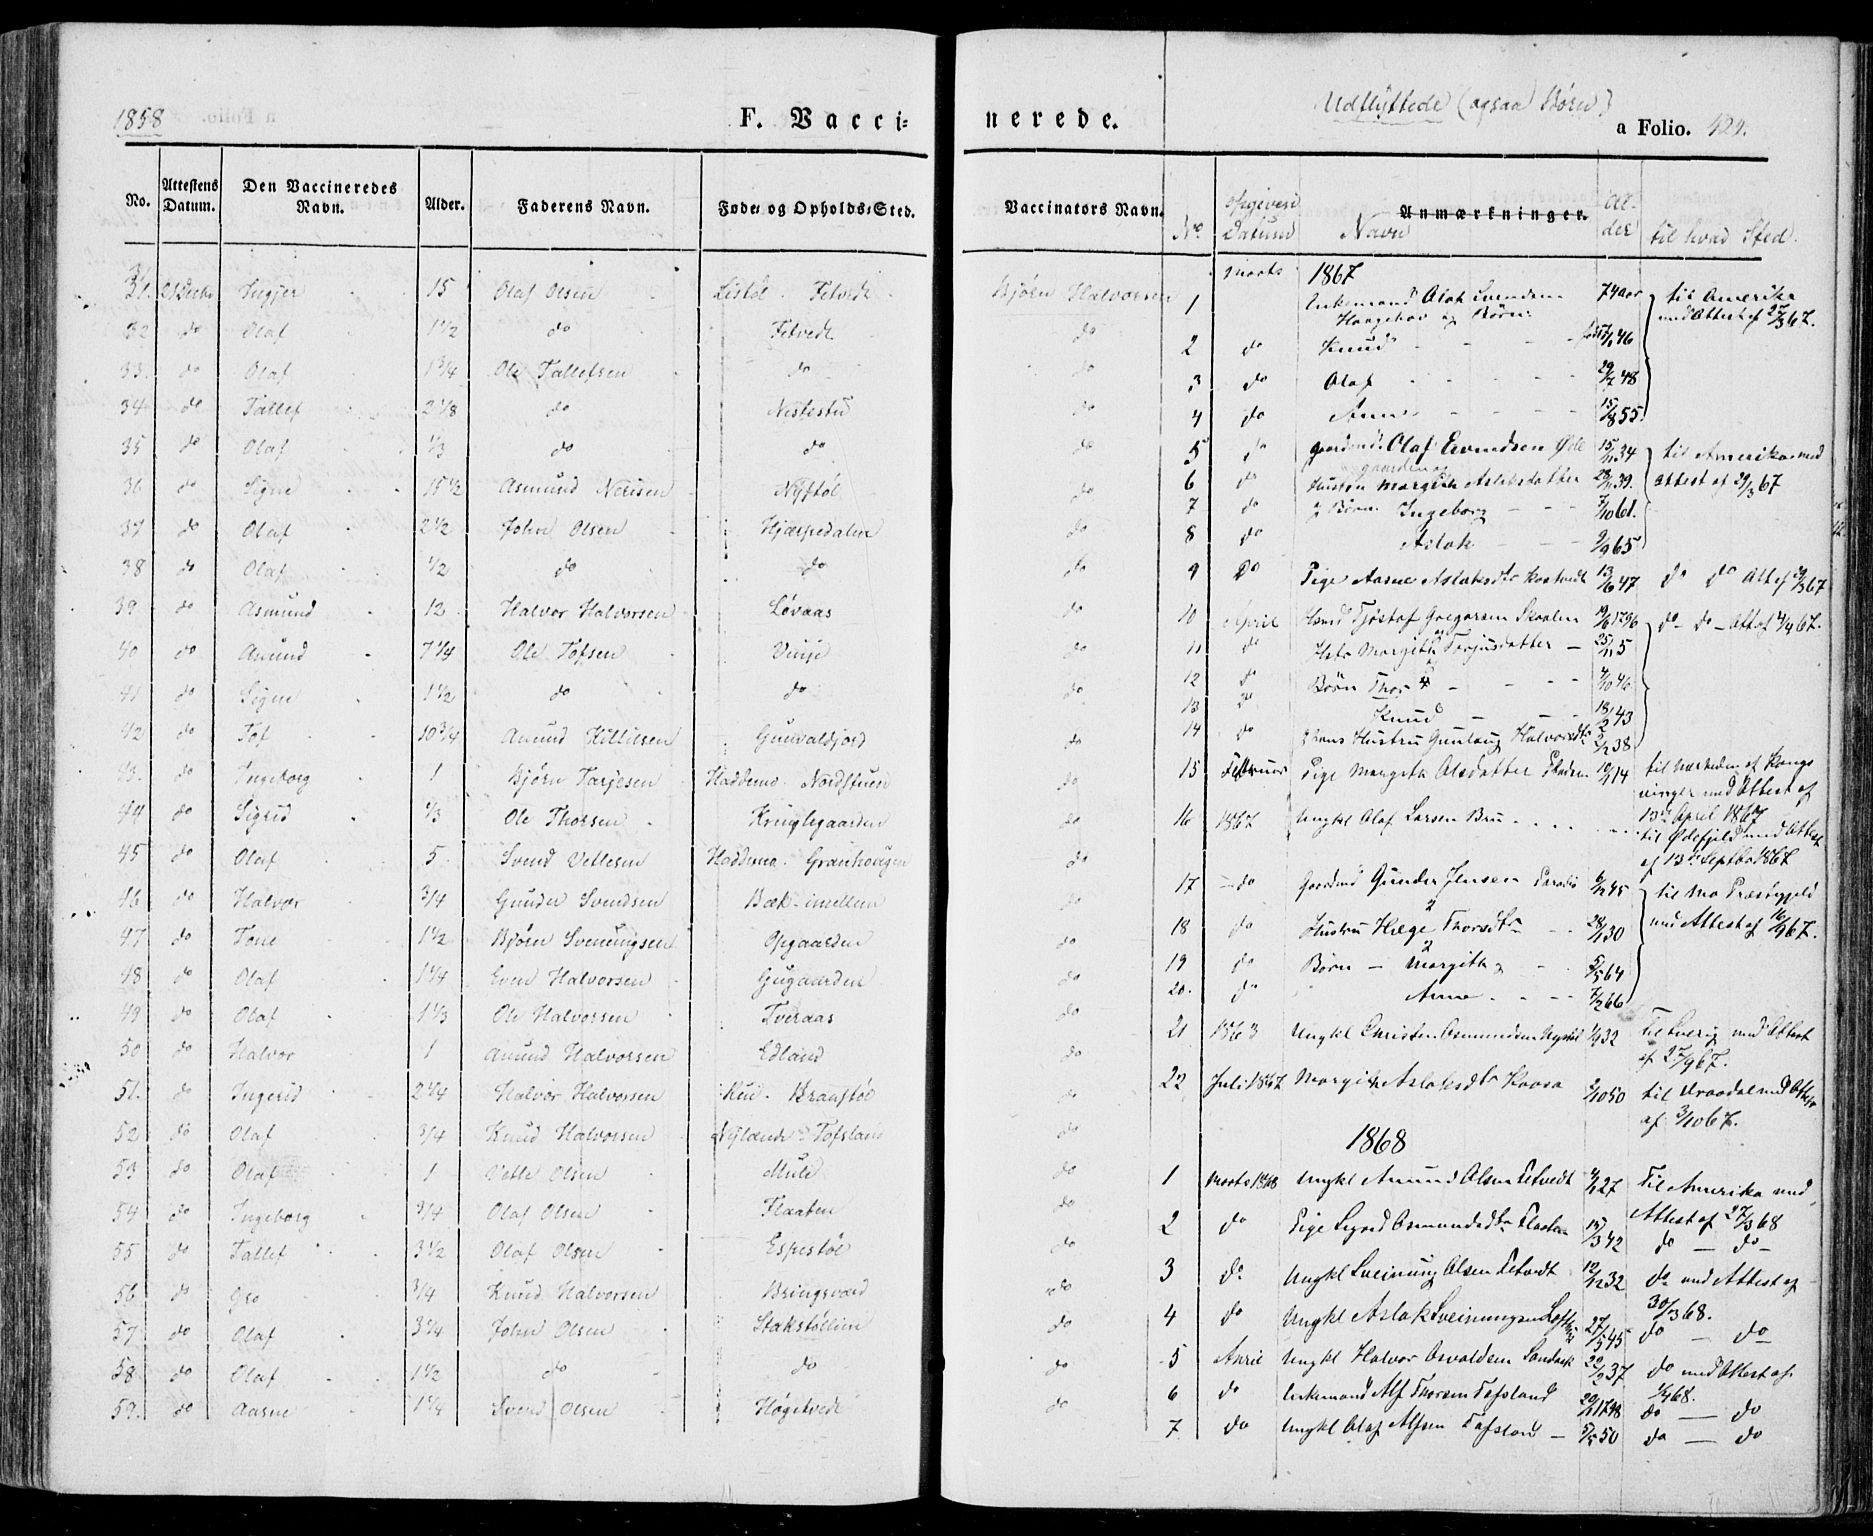 1858
F. Vacci-
nerede.
Udflyttede (ogsaa Børn)
a Folio. 424.
No. Attestens Datum. Den Vaccineredes Navn. Alder. Faderens Navn. Føde- og Opholds-Sted.
Vaccinators Navn. No Datum Navn Anmærkninger. Alder til hvad Sted.
31. Ingjer 15 Olaf Olsen Listøl. Fetvedt. Bjørn Halvorsen
32 do Olaf 1 1/2 do Fetvedt. do
33. do Olaf 1 3/4 Ole Tallefsen do do
34 do Tallef 2 1/8 do Nestestu do
35 do Olaf 1/3 do do do
36 do Signe 15 1/2 Asmund Nerisen Nystøl do
37 do Olaf 2 1/2 John Olsen Hjærpedalen do
38 do Olaf 1/2 do do do
39 do Asmund 12 Halvor Halvorsen Løvaas do
40 do Anund 7 1/4 Ole Tofsen Vinje do
41 do Signe 1 1/2 do do do
42 do Tof 10 3/4 Anund Kittilsen Gunvaldjord do
43. do Ingeborg 1 Bjørn Tarjesen Haddemo. Nordstuen do
44 do Sigrid 1/3 Ole Thorsen Kruglegaarden do
45 do Olaf 5 Svend Vetlesen Haddemo. Granhougen do
46 do Halvor 3/4 Gunder Svendsen Bæk-imellem do
47 do Tone 1 1/2 Bjørn Sveinungsen Opgaarden do
48 do Olaf 1 1/4 Even Halvorsen Gugaarden do
49 do Olaf 1 1/3 Ole Halvorsen Tveraas do
50 do Halvor 1 Anund Halvorsen Edland do
51. do Ingerid 2 1/4 Halvor Halvorsen Rui. Kraastøl do
52 do Olaf 3/4 Knud Halvorsen Nylænde Tofsland do
53 do Olaf 1 Vetle Olsen Mule do
54 do Ingeborg 3/4 Olaf Olsen Flaaten do
55 do Tallef 3 1/2 Olaf Olsen Espestøl do
56 do Gro 3/4 Knud Halvorsen Bringsvær do
57. do Olaf 3 1/4 John Olsen Stokstøllien do
58 do Olaf 1 1/2 do do do
59. do Aasne 1 1/4 Svend Olsen Høgetvedt do
Marts 1867
1 Enkemand Olaf Svendsen 74 aar til Amerika
Haugehov og Børn: med Attest af 27/3 67.
2 do Knud 46
3 do Olaf 29/7 48
4 do Anne 15/8 55.
5 do gaardmd. Olaf Evindsen 15/11 34 til Amerika med
6 do Hustru Margith Aslaksdatter 28/11 39. Attest af 29/3 67
7 do 2 Børn Ingeborg 7/10 61.
8 do Aslak 9/9 65
9 Do Pige Aasne Aslaksdtr 13/6 47 do do Att af 29/3 67
10 April Hmd Tjøstaf Gregorsen Skaalen 19/6 1796 do - do - Att af 4/4 67.
11 do Hstr Margith Torjusdatter 25/11 5
12 do Børn Thor 4/10 46
13 do Knud 18/2 43
14 do hans Hustru Gunlaug Halvorsdtr 2/12 38
15 Februar Pige Margith Olsdatter 10/11 14 til nærheden af Kongsvinger med Attest af
13de April 1867
16 1867 Ungkl Olaf Larsen Bru til med Attest
af 13de Septbr 1867
17 do Gaardmd Gunder Jensen 6/12 45 til Mo Præstegjeld
18 do Hustru Hæge Thorsdtr 28/1 30 med Attest af 16/9 67.
19 do Børn - Margith 5/5 64
20. do Anne 7/2 66
21 1863 Ungkl Christen Osmundsen Nystøl 1/9 32 til Sverig med Attest
af 27/9 67.
22 Juli 1867 Margith Aslaksdtr Kaasa 2/10 50 til Vraadal med Attest
af 3/10 67.
1868
1 Marts 1868 Ungkl Anund Olsen Fetvedt 4/12 27 Til Amerika med
Attest af 27/3 68
2 do Pige Sigrid Osmundsdtr Flaaten 15/3 42 do - do -
3 do Ungkl Sveinung Olsen Fetvedt 12/12 32 do med Attest af
30/3 68.
4 do Ungkl Aslak Sveinungsen 27/5 45 do - do
5 April Ungkl Halvor Osvaldsen 20/2 37 do med Attest af
1/4 68.
6 do Enkemand Alf Thorsen Tofsland 20/11 1798 do - do
7 do Ungkl Olaf Alfsen Tofsland 5/5 50 do - do